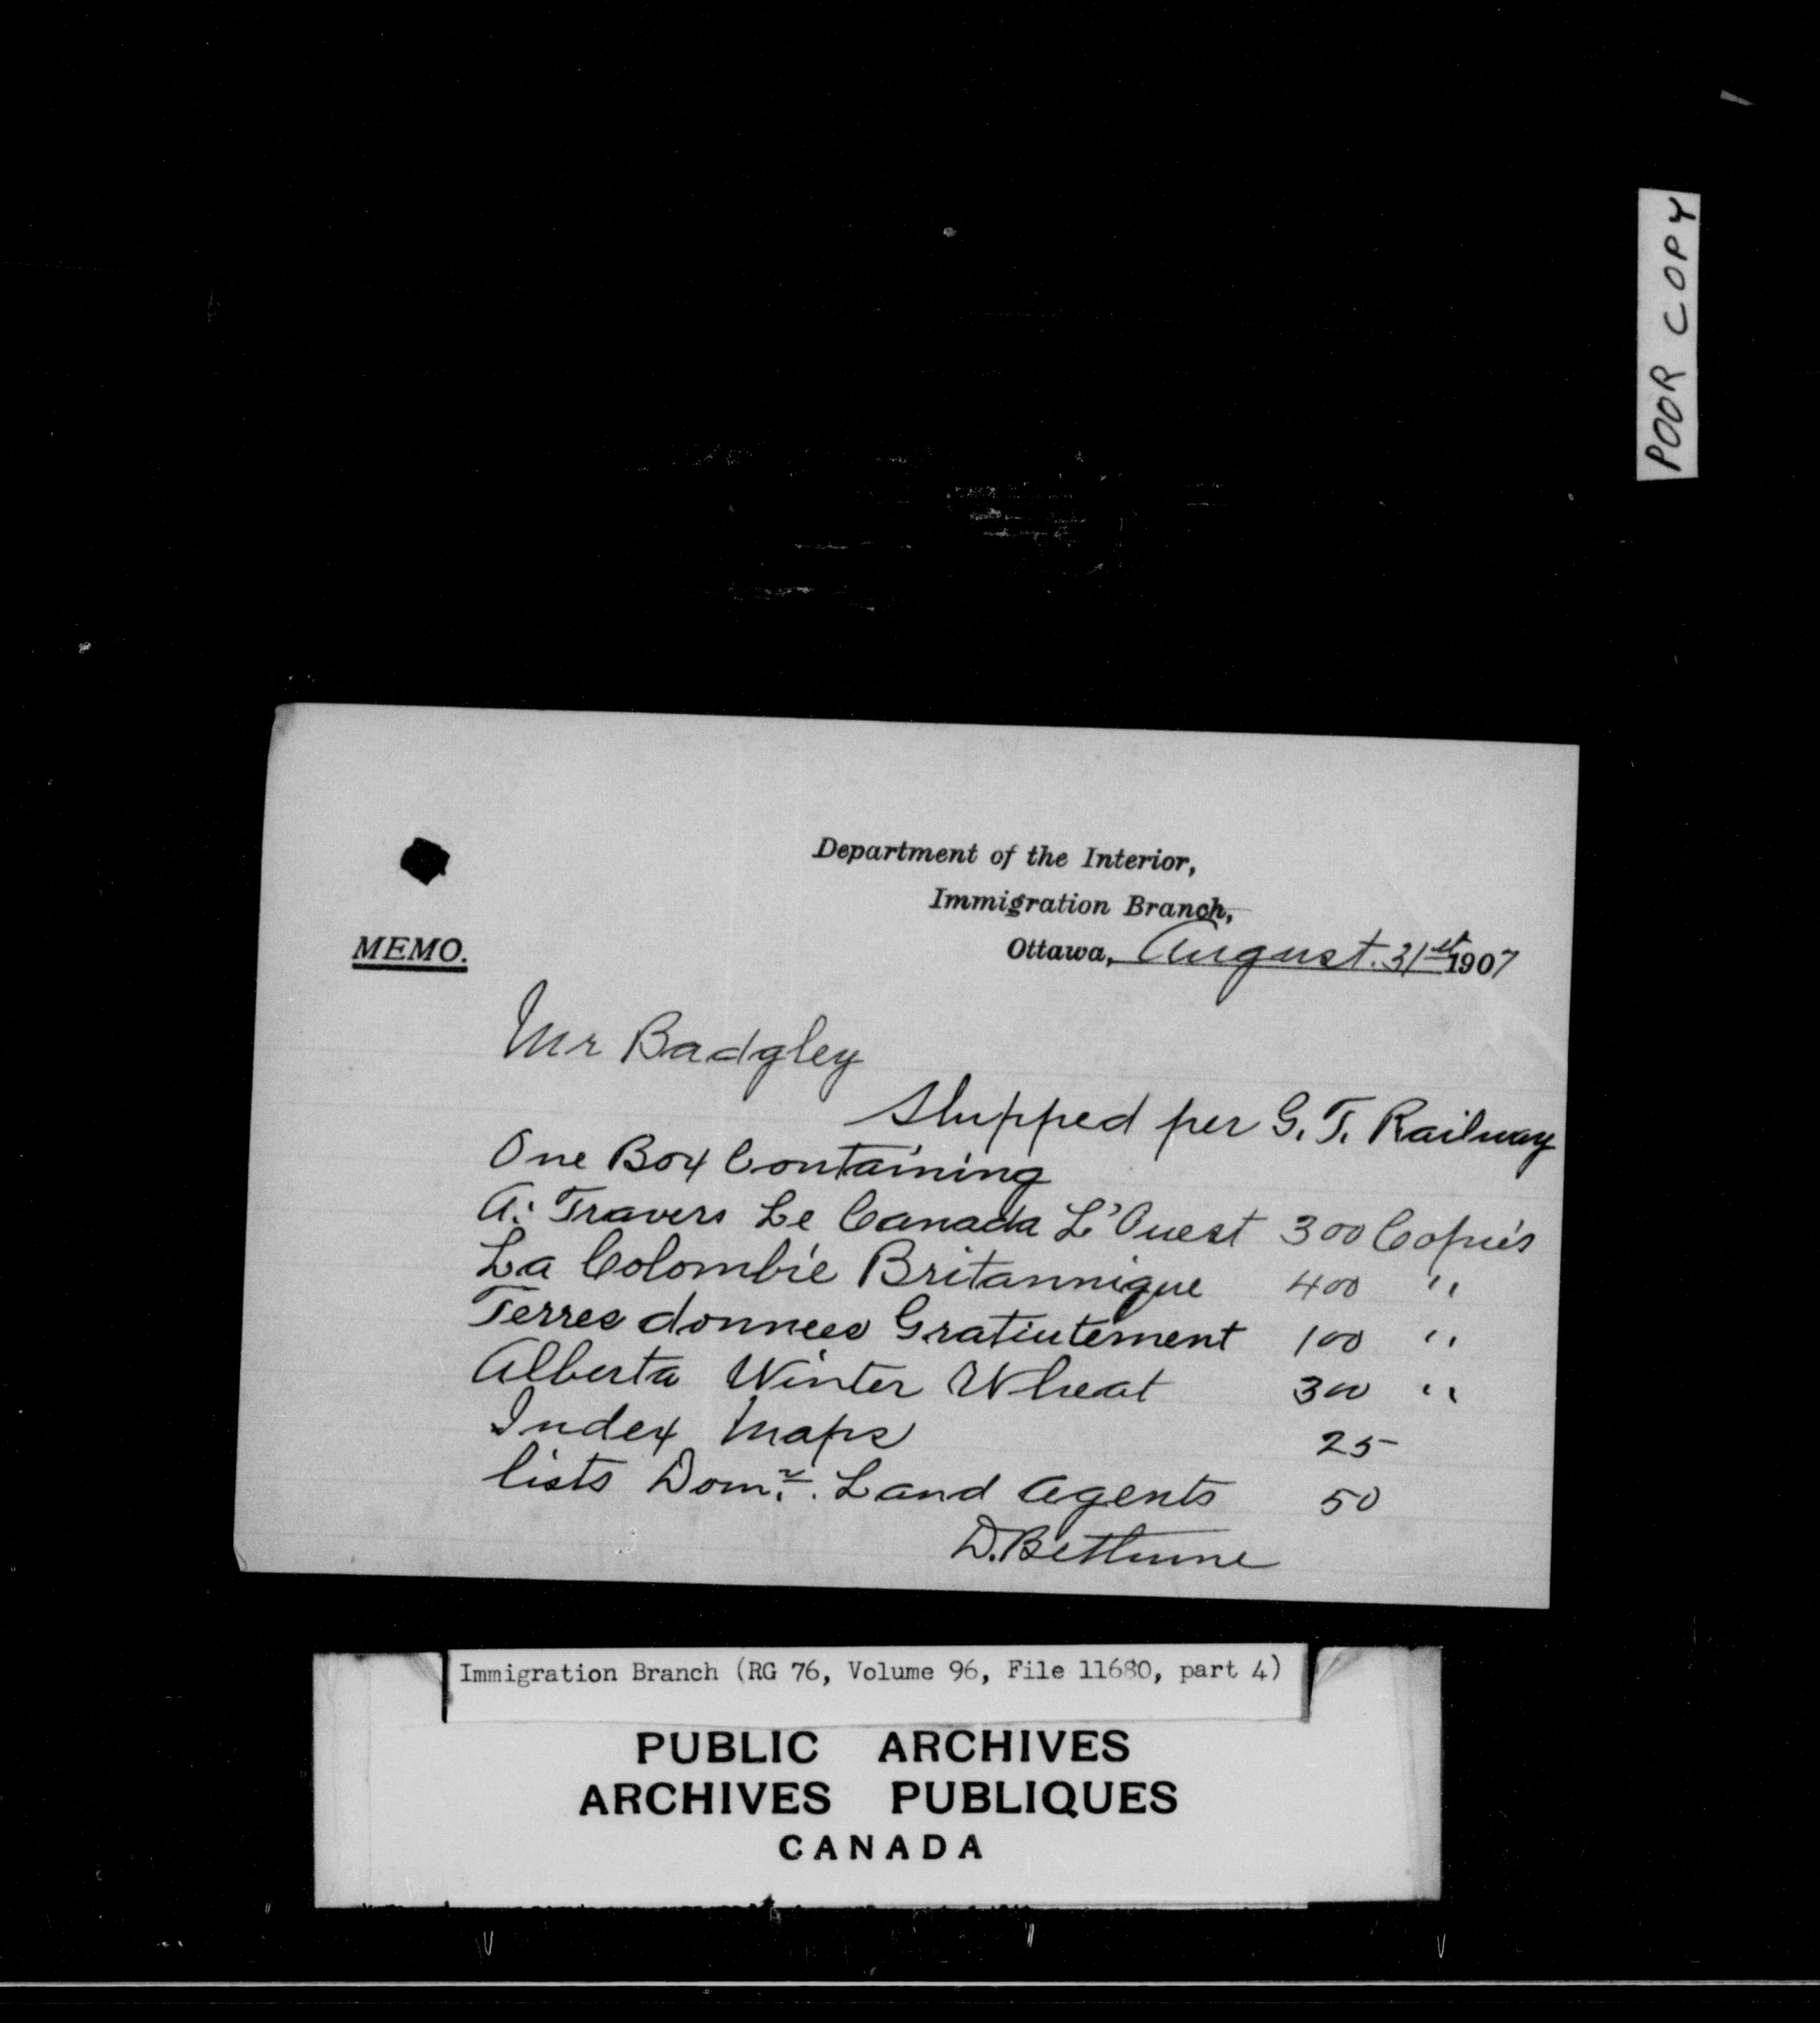 POOR COPY
Department of the Interior,
Immigration Branch,
MEMO.
Ottawa, August. 31st 1907
Mr Badgley
Shipped per G. T. Railway
One Box Containing
A: Travers Le Canada L'Ouest 300 Copies
La Colombie Britannique 400 "
Terres donnees Gratiutement 100 "
Alberta Winter Wheat 300 "
Index Maps 25
lists Domn. Land Agents 50
D. Bethune
Immigration Branch (RG 76, Volume 96, File 11680, part 4)
PUBLIC ARCHIVES
ARCHIVES PUBLIQUES
CANADA